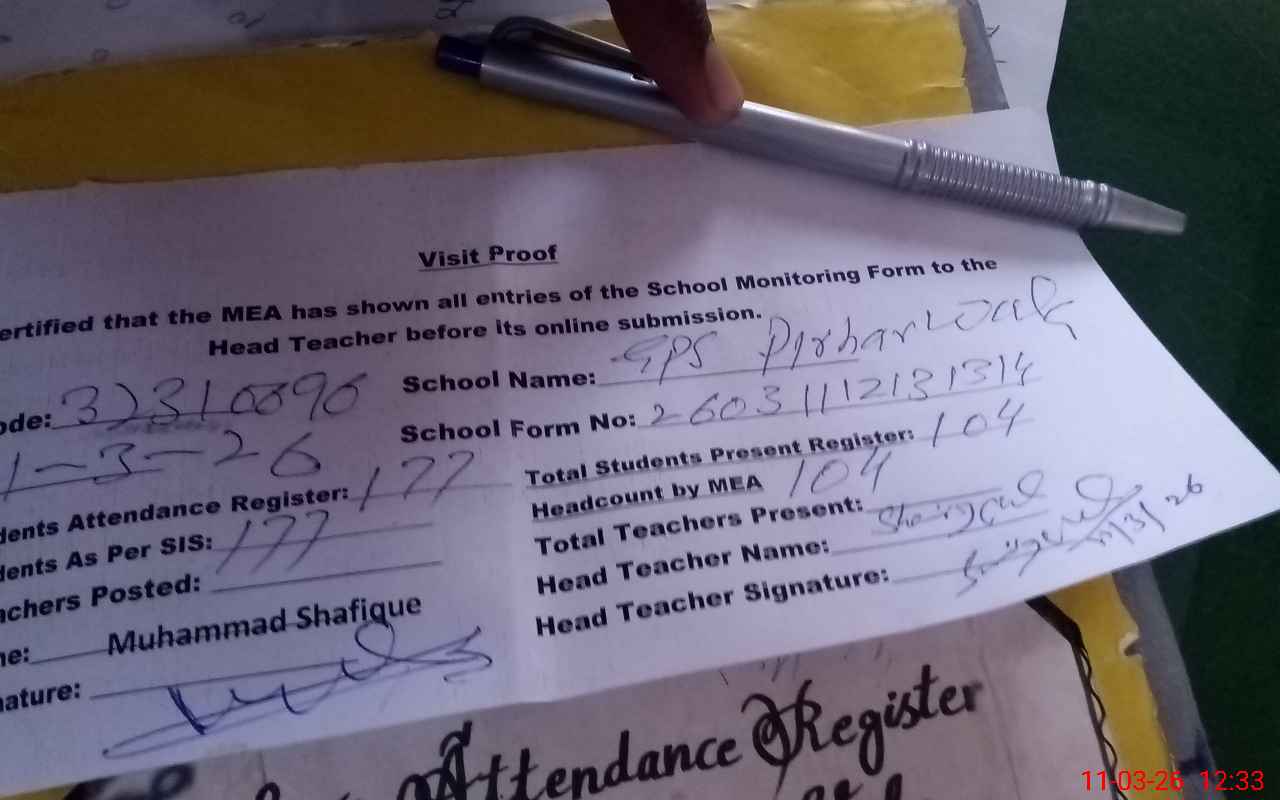 Visit Proof
ertified that the MEA has shown all entries of the School Monitoring Form to the
Head Teacher before its online submission.
ode: 32310096 School Name: GPS Pirhar
1-3-26 School Form No: 26031112131314
dents Attendance Register: 177 Total Students Present Register: 104
dents As Per SIS: 177 Headcount by MEA 104
achers Posted: Total Teachers Present:
me: Muhammad Shafique Head Teacher Name:
nature: Head Teacher Signature: 11/3/26
Attendance Register
11-03-26 12:33